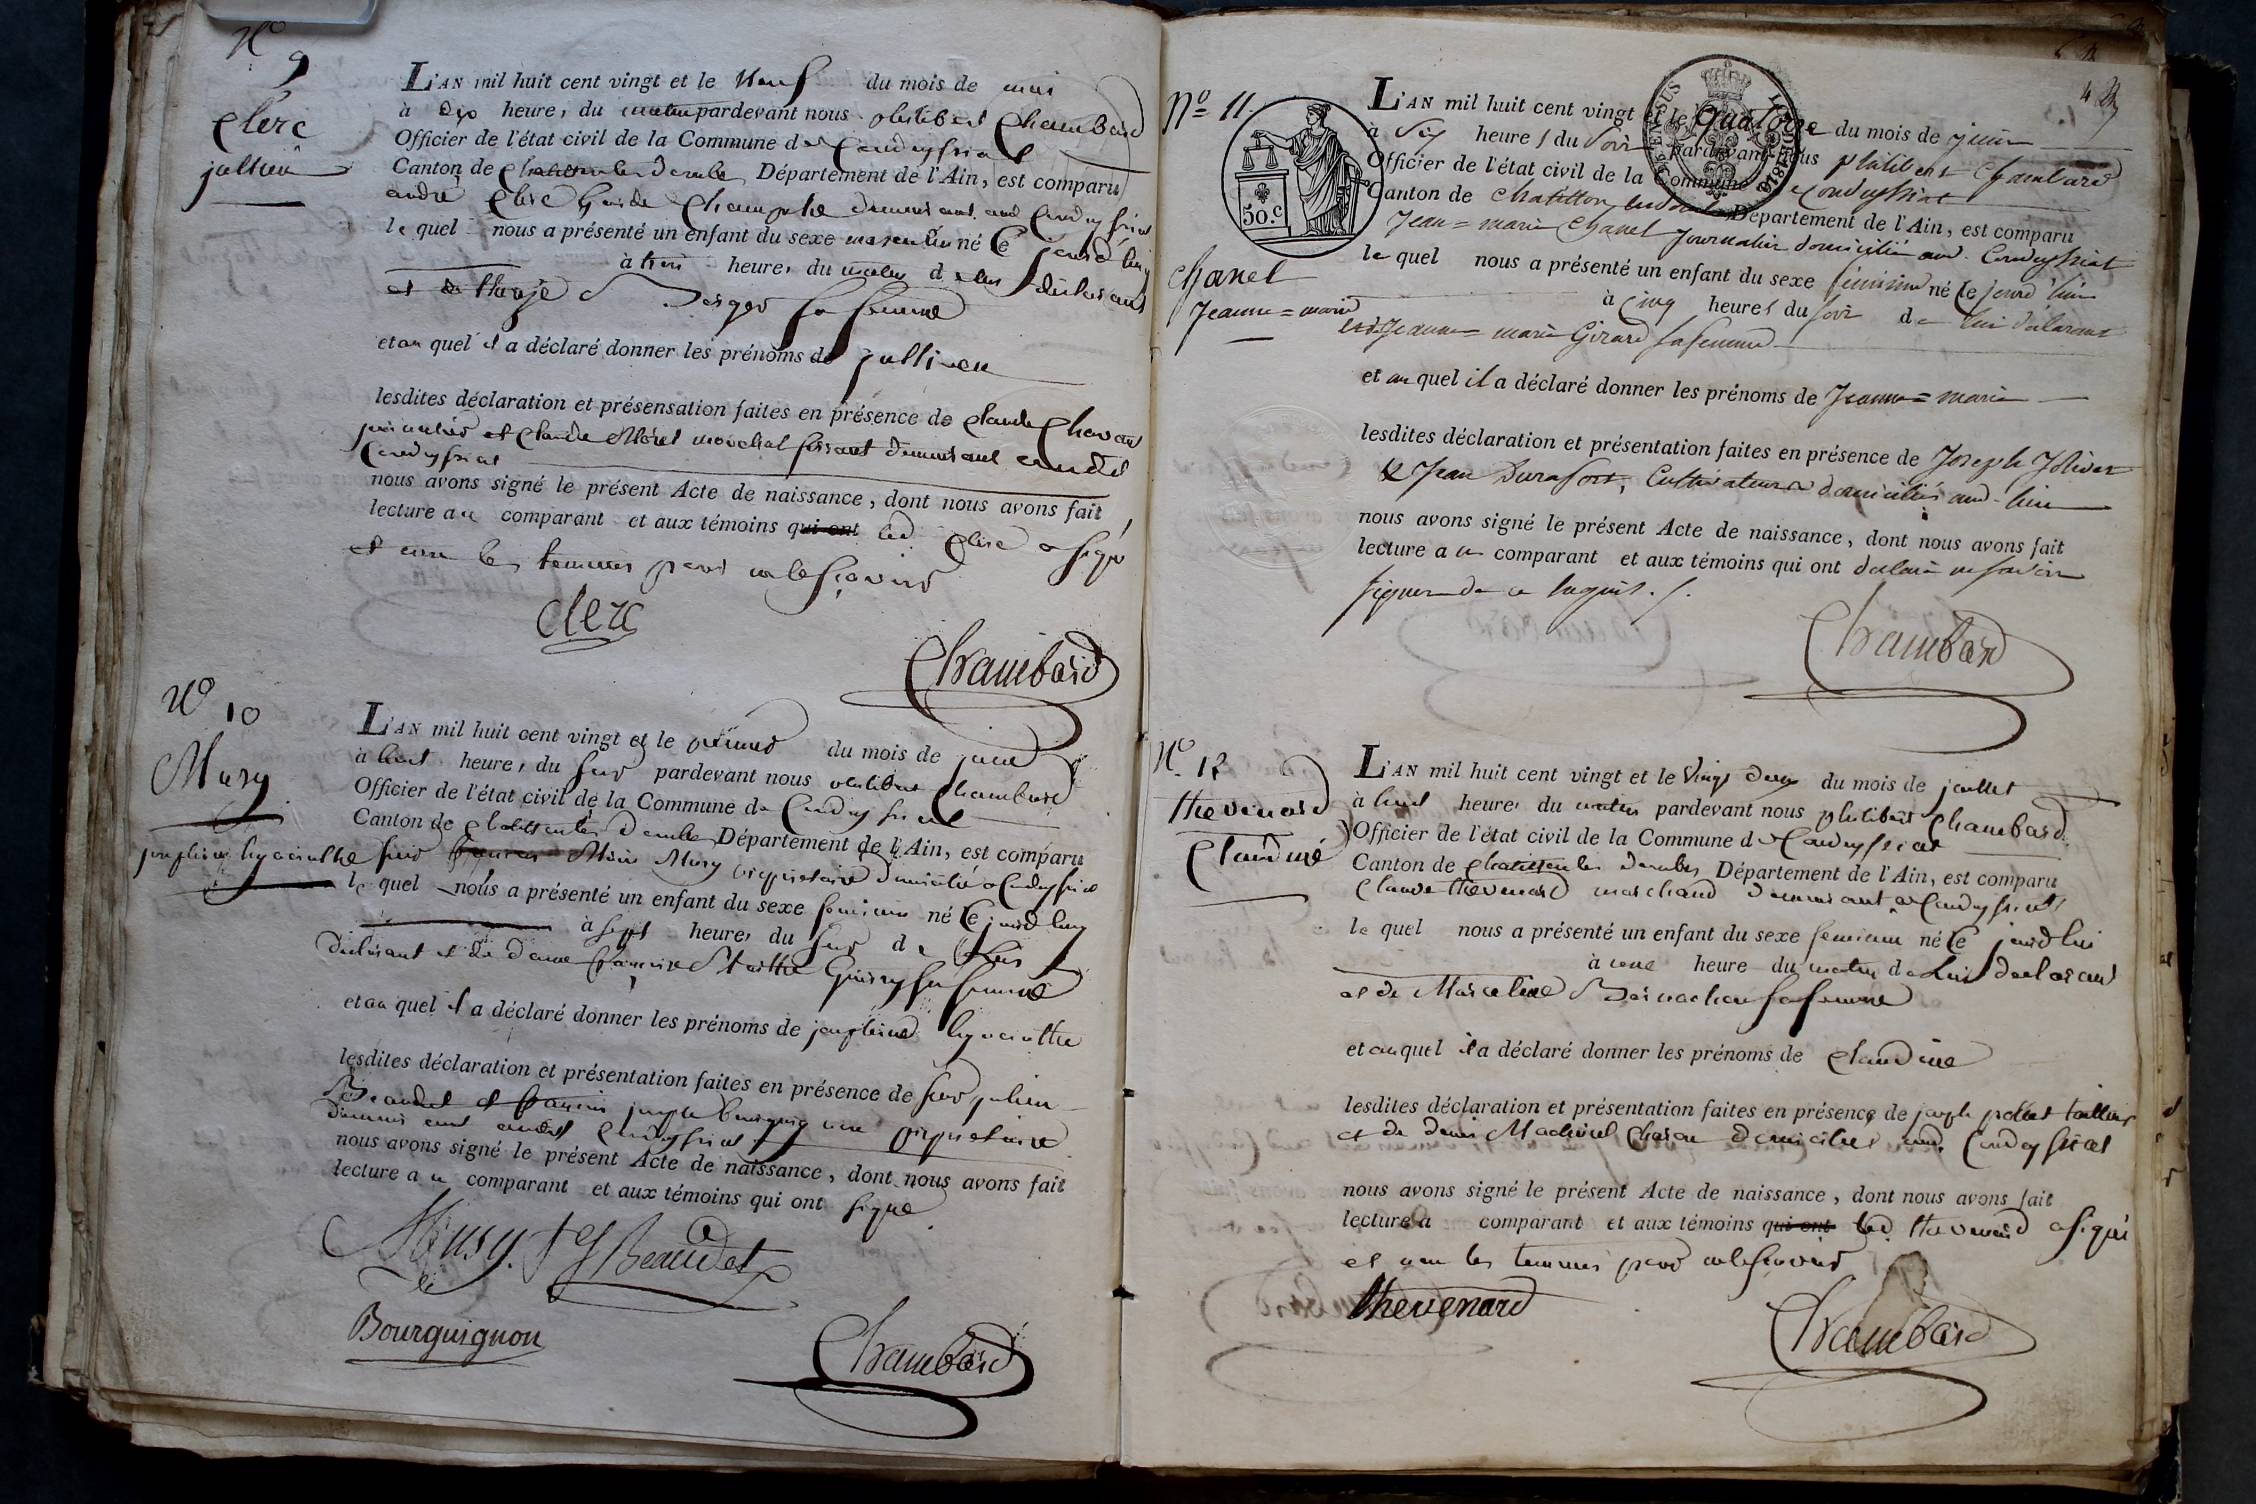 No 9
Clerc
jullien
L'AN mil huit cent vingt et le Neuf du mois de mai
à dix heures du matin pardevant nous philibert Chambard
Officier de l'état civil de la Commune de Condeyssiat
Canton de Chatillon les Dombes Département de l'Ain, est comparu
andré Clerc Garde Champetre demeurant aud Condeyssiat
le quel nous a présenté un enfant du sexe masculin né le jourd'huy
à trois heures du matin de lui déclarant
et de Berger sa femme
et au quel il a déclaré donner les prénoms de jullien
lesdites déclaration et présensation faites en présence de Claude
et Claude marechal ferrant demeurant audit
Condeyssiat
nous avons signé le présent Acte de naissance, dont nous avons fait
lecture au comparant et aux témoins qui ont led Clerc a signé
et non les temoins pour ne le sçavoir
Clerc
Chambard
No 10
Musy
josephine hyacinthe
L'AN mil huit cent vingt et le premier du mois de juin
à huit heures du soir pardevant nous philibert Chambard
Officier de l'état civil de la Commune de Condeyssiat
Canton de Chatillon les Dombes Département de l'Ain, est comparu
sieur Musy propriétaire domicilié a Condeyssiat
le quel nous a présenté un enfant du sexe feminin né le jourd'huy
à sept heures du soir de lui
déclarant et de dame françoise sa femme
et au quel il a déclaré donner les prénoms de josephine hyacinthe
lesdites déclaration et présentation faites en présence de sieur julien
Beaudet et joseph bourguignon propriétaire
demeurant audit Condeyssiat
nous avons signé le présent Acte de naissance, dont nous avons fait
lecture au comparant et aux témoins qui ont signé
Musy. Beaudet
Bourguignon
Chambard
No 11.
50.c
Chanel
Jeanne=marie
4
L'AN mil huit cent vingt et le Quatorze du mois de juin
à Six heures du Soir pardevant nous philibert Chambard
Officier de l'état civil de la Commune de Condeyssiat
Canton de Chatillon les Dombes Département de l'Ain, est comparu
Jean=marie Chanel Journalier domicilié aud. Condeyssiat
le quel nous a présenté un enfant du sexe féminin né le jourd'hui
à cinq heures du soir de lui déclarant
et de Jeanne=marie Girard sa femme
et au quel il a déclaré donner les prénoms de Jeanne=marie
lesdites déclaration et présentation faites en présence de Joseph Jolivet
& Jean Durafort, Cultivateurs domiciliés aud. lieu
nous avons signé le présent Acte de naissance, dont nous avons fait
lecture au comparant et aux témoins qui ont déclaré ne savoir
signer de ce requis ./.
Chambard
No 12
thevenard
Claudine
L'AN mil huit cent vingt et le Vingt deux du mois de juillet
à huit heures du matin pardevant nous philibert Chambard
Officier de l'état civil de la Commune de Condeyssiat
Canton de Chatillon les Dombes Département de l'Ain, est comparu
Claude thevenard marchand demeurant a Condeyssiat
le quel nous a présenté un enfant du sexe feminin né le jourd'hui
à une heure du matin de Lui declarant
et de Marceline Bernachon sa femme
et au quel il a déclaré donner les prénoms de Claudine
lesdites déclaration et présentation faites en présence de joseph tailleur
et de denis domiciliés aud. Condeyssiat
nous avons signé le présent Acte de naissance, dont nous avons fait
lecture au comparant et aux témoins qui ont led. thevenard a signé
et non les temoins pour ne le sçavoir
thevenard
Chambard